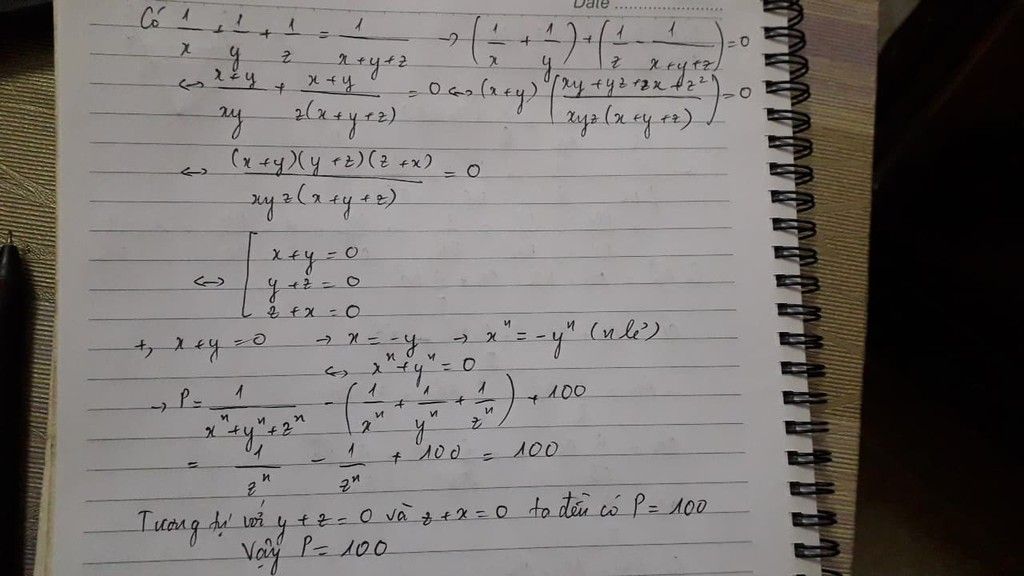 Date
Có 1/x + 1/y + 1/z = 1/(x+y+z) → (1/x + 1/y) + (1/z - 1/(x+y+z)) = 0
↔ (x+y)/(xy) + (x+y)/(z(x+y+z)) = 0 ↔ (x+y) ((xy+yz+zx+z²)/(xyz(x+y+z))) = 0
↔ ((x+y)(y+z)(z+x))/(xyz(x+y+z)) = 0
↔ [ x+y = 0
y+z = 0
z+x = 0
+, x+y = 0 → x = -y → xⁿ = -yⁿ (n lẻ)
↔ xⁿ+yⁿ = 0
→ P = 1/(xⁿ+yⁿ+zⁿ) - (1/xⁿ + 1/yⁿ + 1/zⁿ) + 100
= 1/zⁿ - 1/zⁿ + 100 = 100
Tương tự với y+z = 0 và z+x = 0 ta đều có P = 100
Vậy P = 100